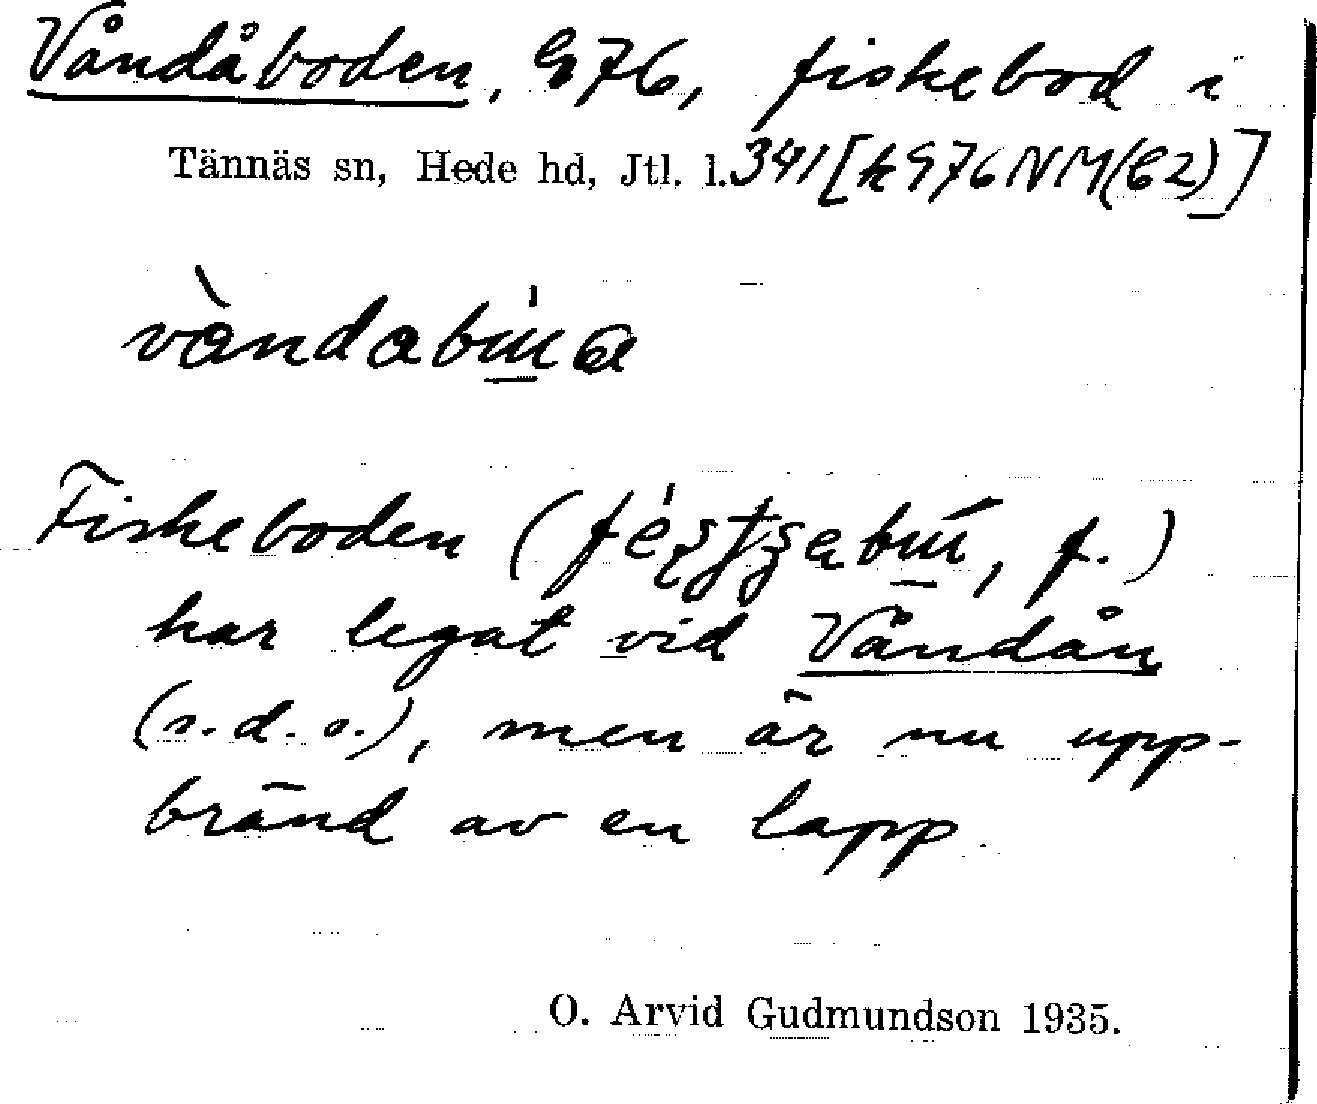 Våndåboden, G76, fiskebod i
Tännäs sn, Hede hd, Jtl. l. 341 [k G76 NM(62)]
vàndabɯ́a
Fiskeboden (, f.)
har legat vid Våndån
(s.d.o.), men är nu upp-
bränd av en lapp.
O. Arvid Gudmundson 1935.